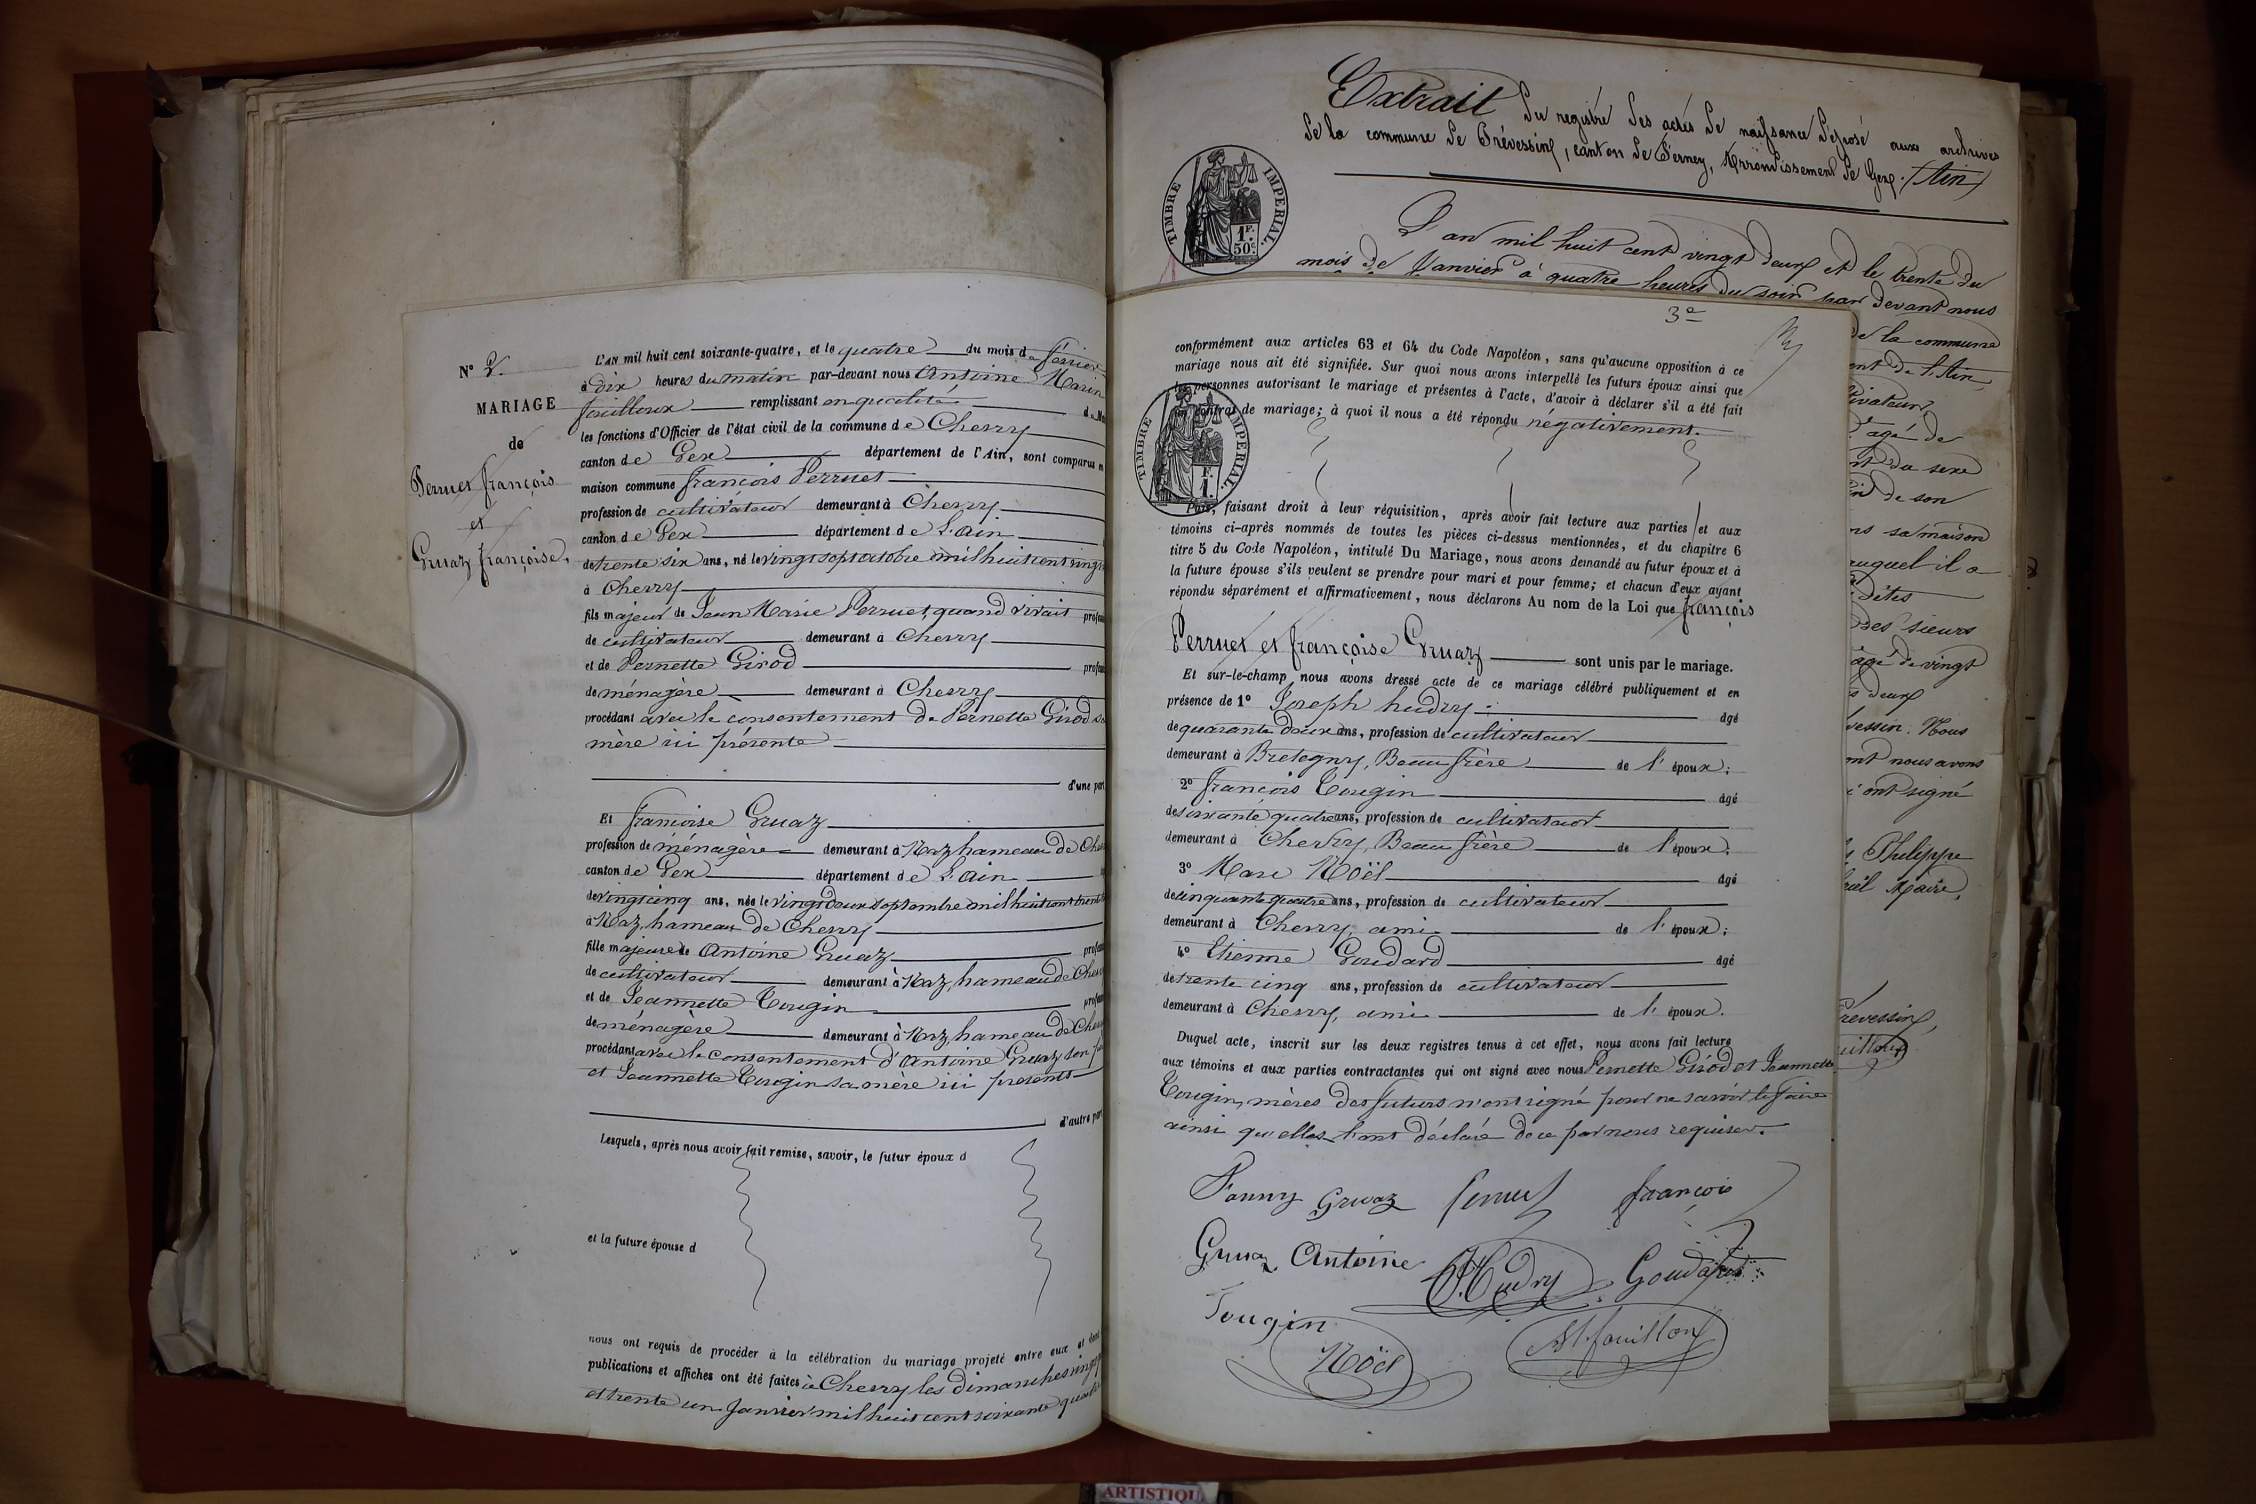 N° 2.
MARIAGE
de
Perruet françois
et
Gruaz françoise,
L'AN mil huit cent soixante-quatre, et le quatre du mois de février
à dix heures du matin par-devant nous Antoine Marin
fouilloux remplissant en qualité
les fonctions d'Officier de l'état civil de la commune de Chevry
canton de Gex département de l'Ain, sont comparus
maison commune françois Perruet
profession de cultivateur demeurant à Chevry
canton de Gex département de L'ain
de trente six ans, né le vingt sept octobre mil huit cent vingt
à Chevry
fils majeur de Jean Marie Perruet, quand vivait
de cultivateur demeurant à Chevry
et de Pernette Girod
de ménagère demeurant à Chevry
procédant avec le consentement de Pernette Girod sa
mère ici présente
d'une part
Et françoise Gruaz
profession de ménagère demeurant à Naz, hameau de
canton de Gex département de L'ain
de vingt cinq ans, née le vingt deux septembre mil huit cent
à Naz, hameau de Chevry
fille majeure de Antoine Gruaz
de cultivateur demeurant à Naz, hameau de
et de Jeannette Tougin
de ménagère demeurant à Naz, hameau de
procédant avec le consentement d'Antoine Gruaz son
et Jeannette Tougin sa mère ici présents
d'autre part
Lesquels, après nous avoir fait remise, savoir, le futur époux d
et la future épouse d
nous ont requis de procéder à la célébration du mariage projeté entre eux et dont
publications et affiches ont été faites à Chevry les dimanches
et trente un janvier mil huit cent soixante
Extrait du registre des actes de naissance déposé aux archives
de la commune de Prévessin, canton de Ferney, Arrondissement de Gex. (Ain)
TIMBRE IMPERIAL.
1F. 50c.
L'an mil huit cent vingt deux et le trente du
mois de Janvier à quatre heures du soir par devant nous
de la commune
de l'Ain,
âgé de
du sexe
de son
sa maison
auquel il a
des sieurs
âgé de vingt
deux
Nous
nous avons
ont signé
Philippe
Maire,
3e
conformément aux articles 63 et 64 du Code Napoléon, sans qu'aucune opposition à ce
mariage nous ait été signifiée. Sur quoi nous avons interpellé les futurs époux ainsi que
les personnes autorisant le mariage et présentes à l'acte, d'avoir à déclarer s'il a été fait
contrat de mariage; à quoi il nous a été répondu négativement.
TIMBRE IMPERIAL.
F. 1.
Puis, faisant droit à leur réquisition, après avoir fait lecture aux parties et aux
témoins ci-après nommés de toutes les pièces ci-dessus mentionnées, et du chapitre 6
titre 5 du Code Napoléon, intitulé Du Mariage, nous avons demandé au futur époux et à
la future épouse s'ils veulent se prendre pour mari et pour femme; et chacun d'eux ayant
répondu séparément et affirmativement, nous déclarons Au nom de la Loi que françois
Perruet et françoise Gruaz sont unis par le mariage.
Et sur-le-champ nous avons dressé acte de ce mariage célébré publiquement et en
présence de 1° Joseph hudry âgé
de quarante deux ans, profession de cultivateur
demeurant à Bretegny, Beau frère de l'époux;
2° françois Tougin âgé
de soixante quatre ans, profession de cultivateur
demeurant à Chevry, Beau frère de l'époux;
3° Marc Noël âgé
de cinquante quatre ans, profession de cultivateur
demeurant à Chevry, ami de l'époux;
4° Etienne Goudard âgé
de trente cinq ans, profession de cultivateur
demeurant à Chevry, ami de l'époux.
Duquel acte, inscrit sur les deux registres tenus à cet effet, nous avons fait lecture
aux témoins et aux parties contractantes qui ont signé avec nous Pernette Girod et Jeannette
Tougin, mères des futurs n'ont signé pour ne savoir le faire
ainsi qu'elles l'ont déclaré de ce par nous requises.
Fanny Gruaz Perruet françois
Gruaz Antoine J. Hudry Goudard
Tougin
Noël AM fouilloux
ARTISTIQU